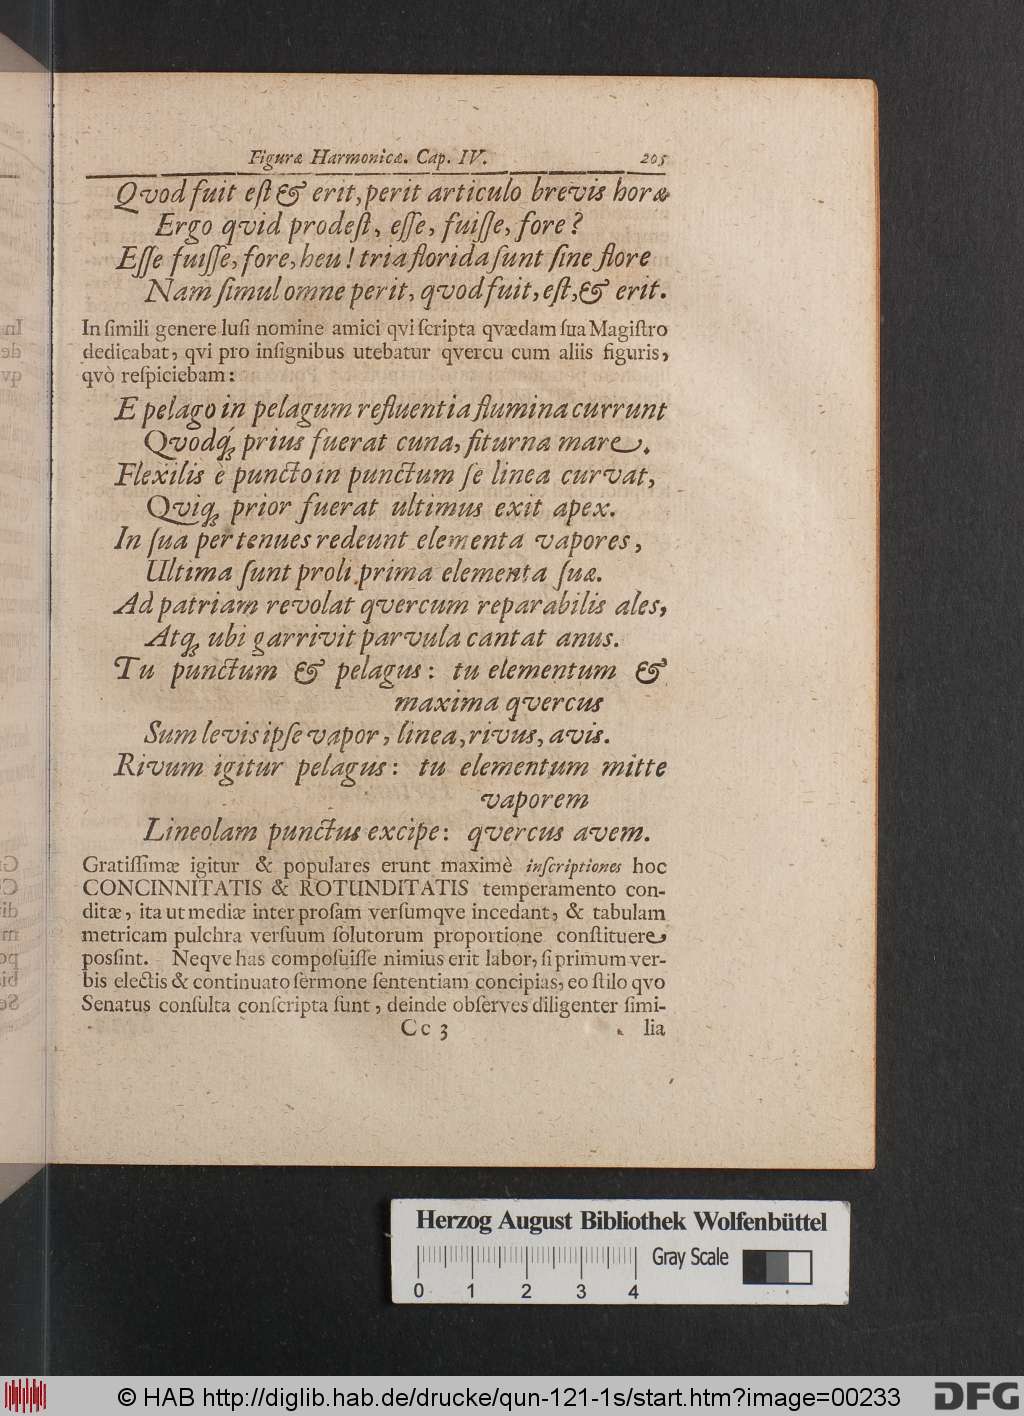 Figuræ Harmonicæ. Cap. IV. 205
Qvod fuit eſt & erit, perit articulo brevis horæ
Ergo qvid prodeſt, eſſe, fuiſſe, fore?
Eſſe fuiſſe, fore, heu! tria florida ſunt ſine flore
Nam ſimul omne perit, qvod fuit, eſt, & erit.
In ſimili genere luſi nomine amici qvi ſcripta qvædam ſua Magiſtro
dedicabat, qvi pro inſignibus utebatur qvercu cum aliis figuris,
qvò reſpiciebam:
E pelago in pelagum refluentia flumina currunt
Qvodq́; prius fuerat cuna, fit urna mare.
Flexilis è puncto in punctum ſe linea curvat,
Qviq; prior fuerat ultimus exit apex.
In ſua per tenues redeunt elementa vapores,
Ultima ſunt proli prima elementa ſuæ.
Ad patriam revolat qvercum reparabilis ales,
Atq; ubi garrivit parvula cantat anus.
Tu punctum & pelagus: tu elementum &
maxima qvercus
Sum levis ipſe vapor, linea, rivus, avis.
Rivum igitur pelagus: tu elementum mitte
vaporem
Lineolam punctus excipe: qvercus avem.
Gratiſſimæ igitur & populares erunt maximè inſcriptiones hoc
CONCINNITATIS & ROTUNDITATIS temperamento con-
ditæ, ita ut mediæ inter proſam verſumqve incedant, & tabulam
metricam pulchra verſuum ſolutorum proportione conſtituere
poſſint. Neqve has compoſuiſſe nimius erit labor, ſi primum ver-
bis electis & continuato ſermone ſententiam concipias, eo ſtilo qvo
Senatus conſulta conſcripta ſunt, deinde obſerves diligenter ſimi-
Cc 3 lia
Herzog August Bibliothek Wolfenbüttel
Gray Scale
0 1 2 3 4
© HAB http://diglib.hab.de/drucke/qun-121-1s/start.htm?image=00233
DFG